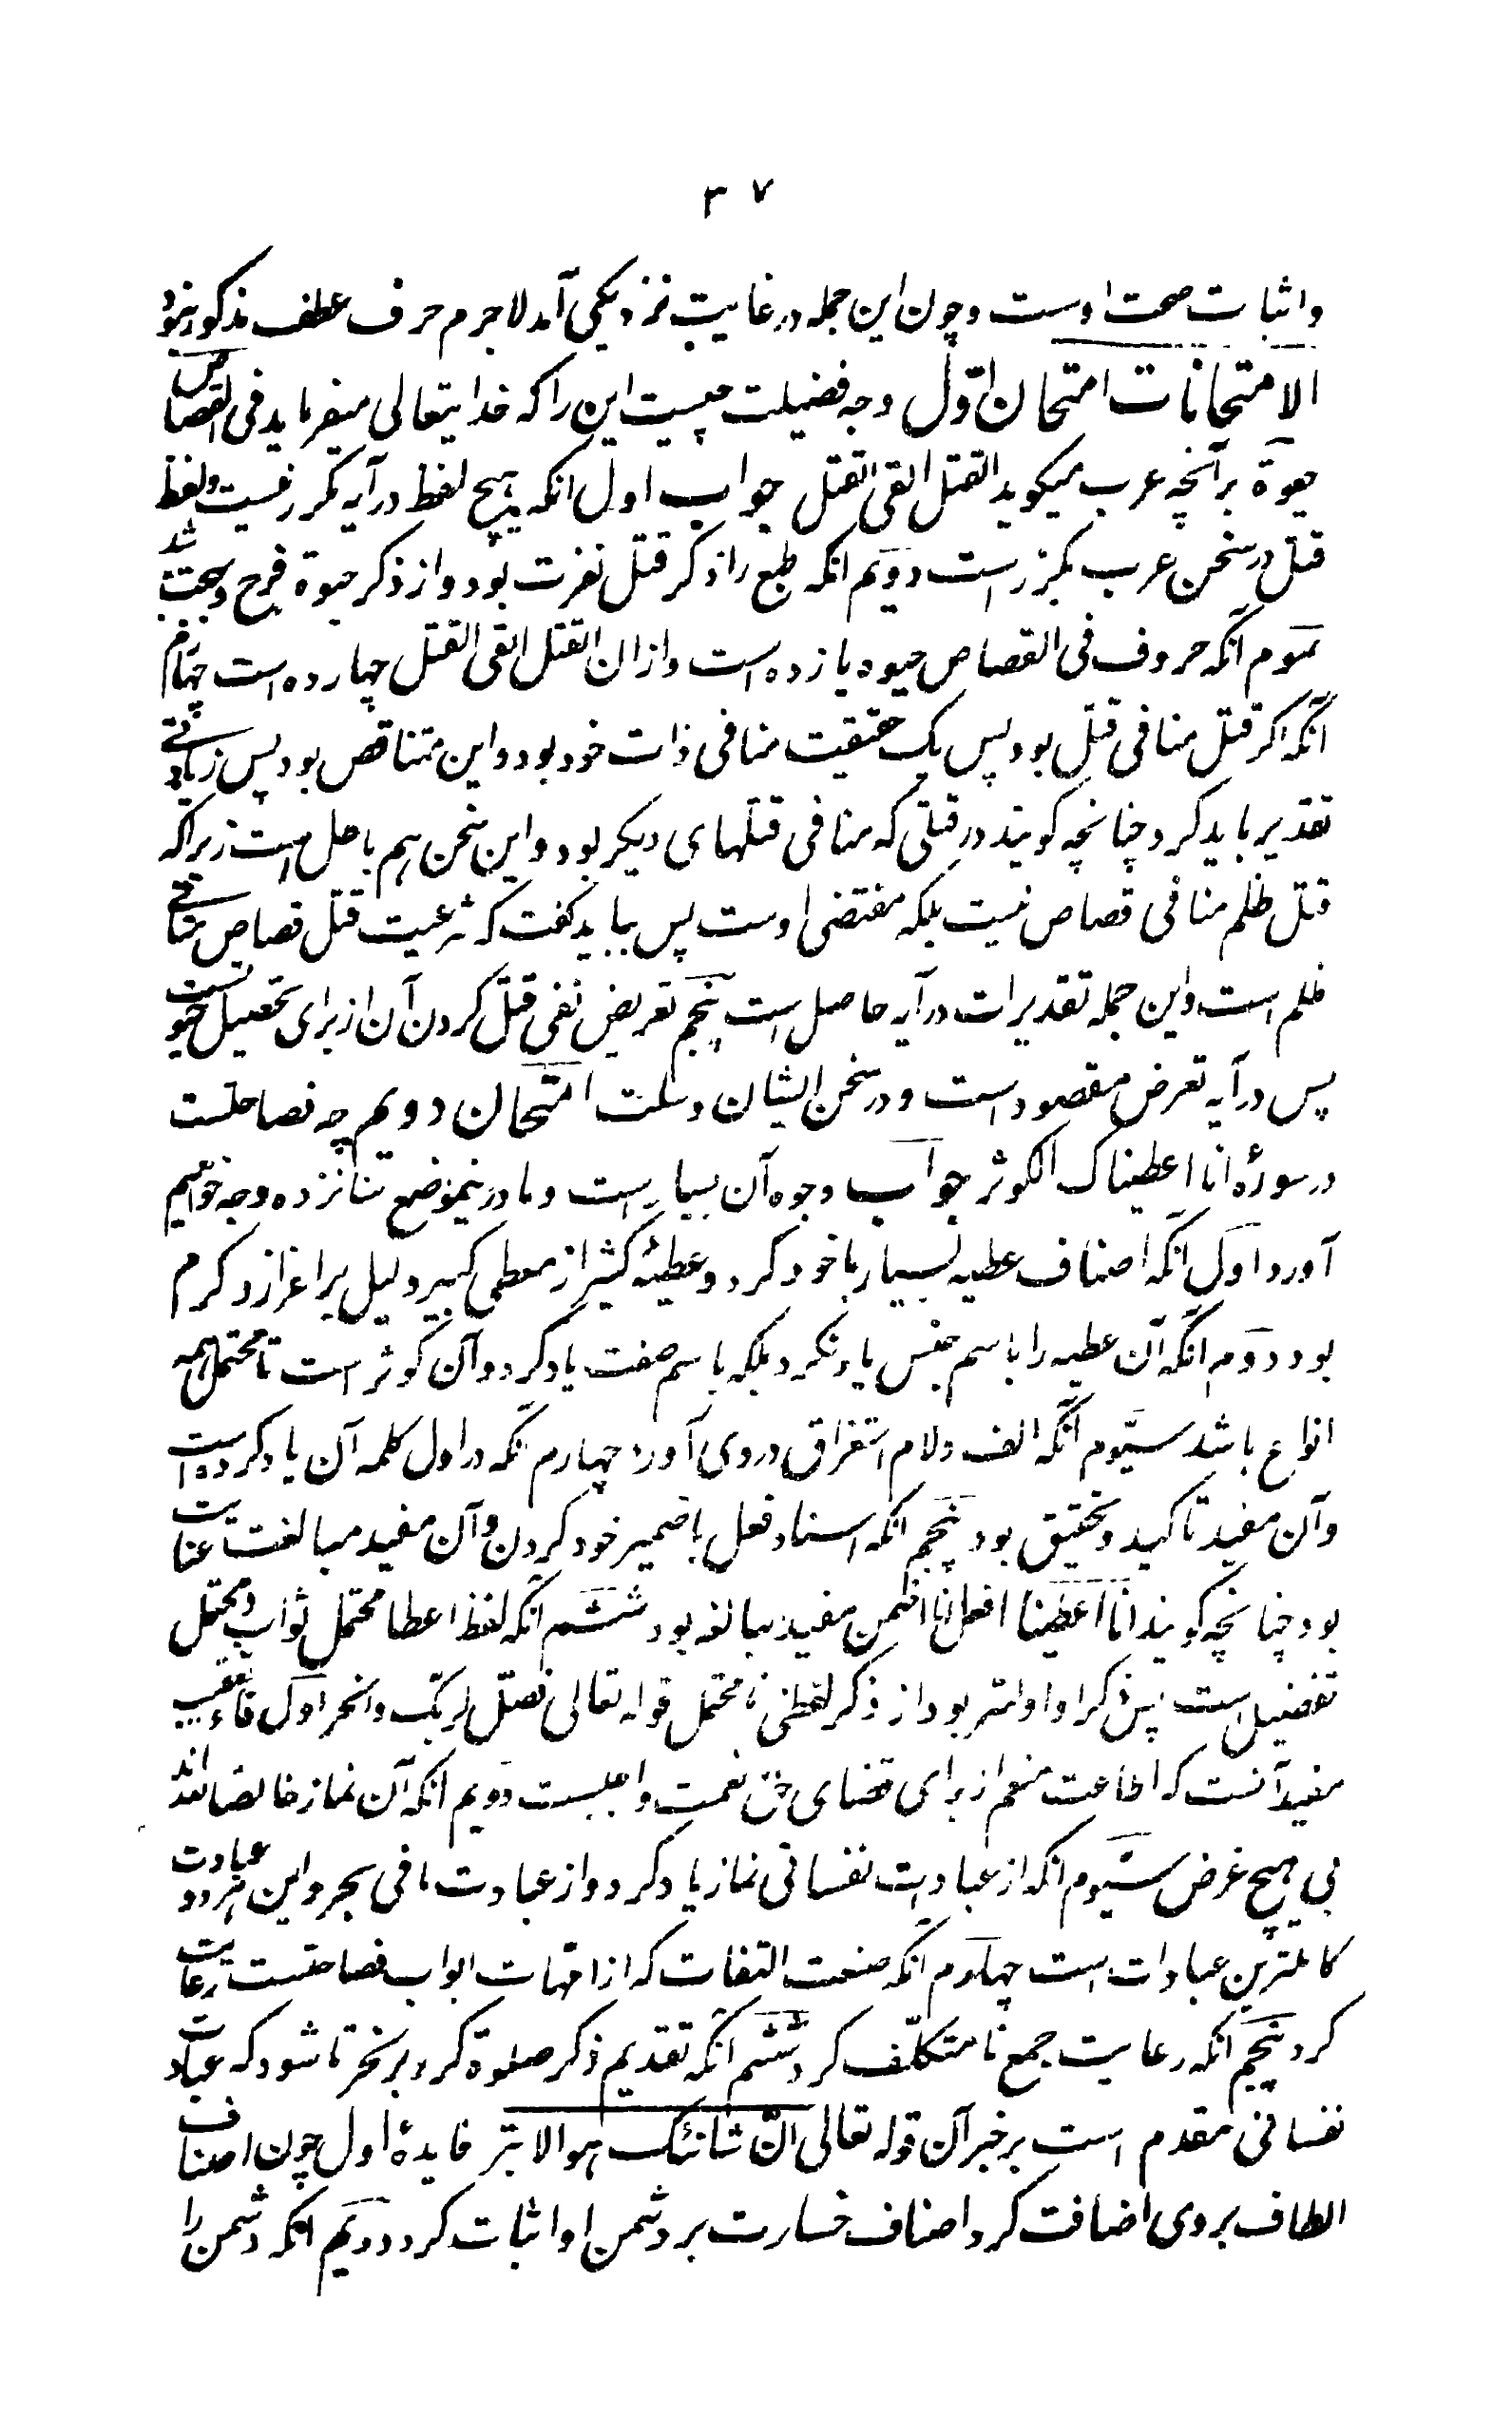 ۳۷
واثبات صحت اوست وچون این جمله در غایت نزدیکی آمد لاجرم حرف عطف مذکور نبود
الامتحانات امتحان اوّل وجه فضیلت چیست این را که خدایتعالی میفرماید فی القصاص
حیوة برآنچه عرب میکوید القتل انفی القتل جواب اول انکه هیچ لفظ در آیه مکرر نیست ولفظ
قتل در سخن عرب مکرر است دویم انکه طبع را از ذکر قتل نفرت بود واز ذکر حیوة فرح وبهجت باشد
سوم آنکه حروف فی القصاص حیوه یازده است وازان القتل انفی القتل چهارده است چهارم
آنکه اکر قتل منافی قتل بود پس یک حقیقت منافی ذات خود بود واین متناقص بود پس زیادتی
تقدیر باید کرد چنانچه کویند در قتلی که منافی قتلهای دیکر بود واین سخن هم باطل است زیراکه
قتل ظلم منافی قصاص نیست بلکه مقتضی اوست پس بباید کفت که شرعیت قتل قصاص منافی
ظلم است واین جمله تقدیرات در آیه حاصل است پنجم تعریض نفی قتل کردن آن از برای تحصیل حیوتست
پس در آیه تعرض مقصود است و در سخن ایشان وسلت امتحان دویم چه فصاحتست
در سورهٔ انا اعطیناک الکوثر جواب وجوه آن بسیار است وما درینموضع شانزده وجه خواهیم
آورد اوّل انکه اصناف عطیه بسیار با خود کرد وعطیهٔ کثیر از معطی کبیر دلیل بر اعزاز وکرم
بود دوم انکه آن عطیه را باسم جنس یاد نکرد بلکه باسم صفت یاد کرد وآن کوثر است تا محتمل همه
انواع باشد سیّوم آنکه الف ولام استغراق در وی آورد چهارم آنکه در اول کلمه آن یاد کرده است
وآن مفید تاکید وتحقیق بود پنجم انکه اسناد فعل با ضمیر خود کردن وآن مفید مبالغت عنایت
بود چنانچه کویند انا اعطینا افعل انا اضمن مفید مبالغه بود ششم آنکه لفظ اعطا محتمل ثواب ومحتمل
تفضیل است پس ذکر او اولیتر بود از ذکر لفظی نا محتمل قوله تعالی فصلّ لربّک وانحر اوّل فاء تعقیب
مفید آنست که اطاعت منعم از برای قضای حق نعمت واجبست دویم انکه آن نماز خالصا لله اند
بی هیچ غرض سیّوم انکه از عبادات نفسانی نماز یاد کرد واز عبادت مافی بحر واین هر دو عبادت
کاملترین عبادات است چهارم آنکه صنعت التفات که از امّهات ابواب فصاحتست رعایت
کرد پنجم انکه رعایت جمع نا متکلّف کرد ششم آنکه تقدیم ذکر صلوة کرد بر نحر تا شود که عبادت
نفسانی مقدم است بر خبر آن قوله تعالی انّ شانئک هوالابتر فایدهٔ اول چون اصناف
الطاف بروی اضافت کرد اصناف خسارت بر دشمن او اثبات کرد دویم انکه دشمن را